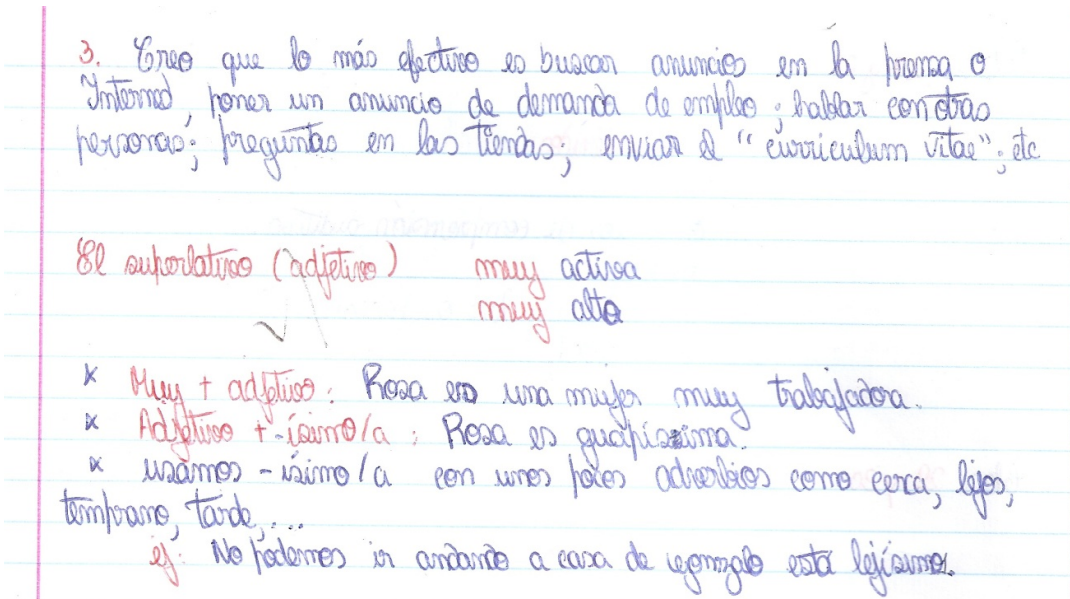 3. Creo que lo más efectivo es buscar anuncios en la prensa o
Internet, poner un anuncio de demanda de empleo; hablar con otras
personas; preguntas en las tiendas; enviar el "curriculum vitae"; etc
El superlativo (adjetivo) muy activa
muy alta
x Muy + adjetivo: Rosa es una mujer muy trabajadora.
x Adjetivo + -ísimo/a: Rosa es guapísima.
x usamos -ísimo/a con unos pocos adverbios como cerca, lejos,
temprano, tarde, ...
ej: No podemos ir andando a casa de está lejísimos.